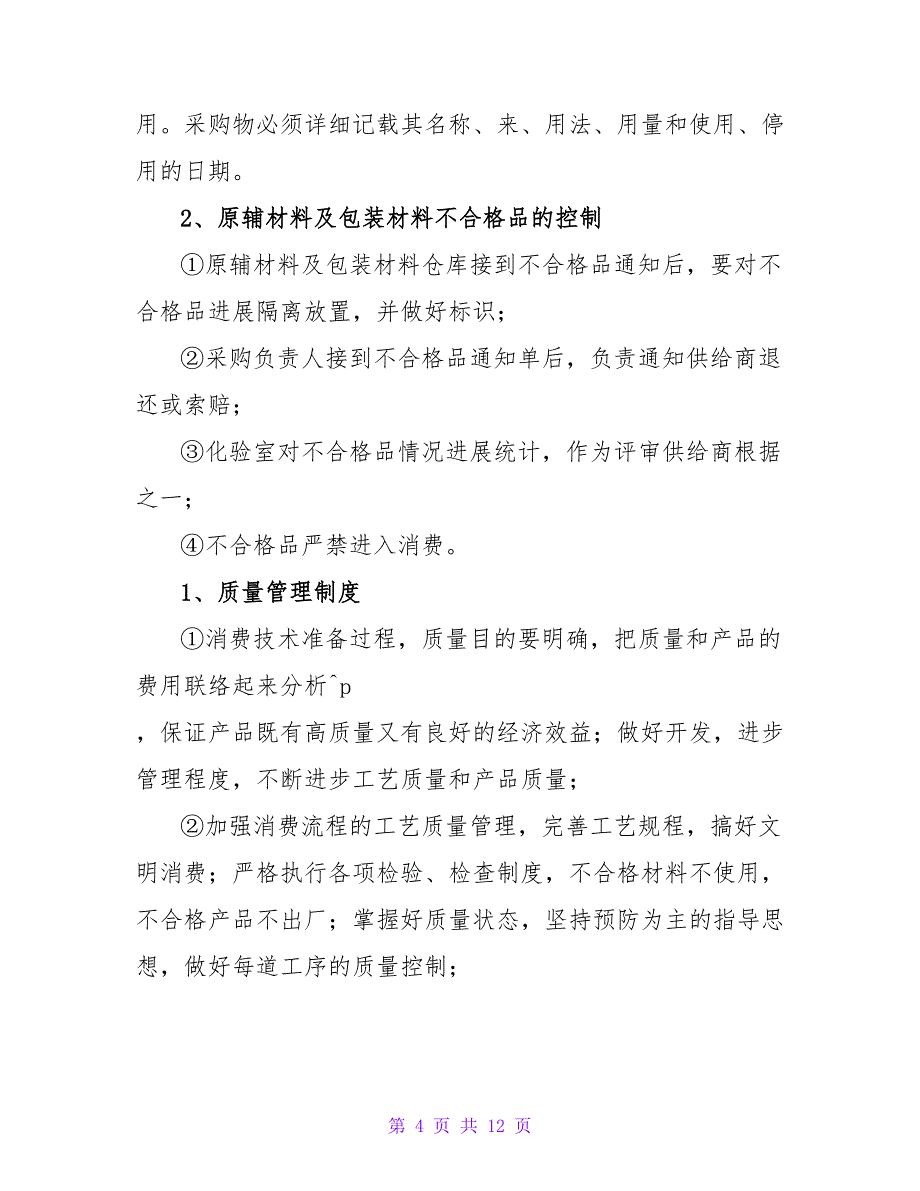 用。采购物必须详细记载其名称、来、用法、用量和使用、停
用的日期。
2、原辅材料及包装材料不合格品的控制
①原辅材料及包装材料仓库接到不合格品通知后，要对不
合格品进展隔离放置，并做好标识；
②采购负责人接到不合格品通知单后，负责通知供给商退
还或索赔；
③化验室对不合格品情况进展统计，作为评审供给商根据
之一；
④不合格品严禁进入消费。
1、质量管理制度
①消费技术准备过程，质量目的要明确，把质量和产品的
费用联络起来分析^p
，保证产品既有高质量又有良好的经济效益；做好开发，进步
管理程度，不断进步工艺质量和产品质量；
②加强消费流程的工艺质量管理，完善工艺规程，搞好文
明消费；严格执行各项检验、检查制度，不合格材料不使用，
不合格产品不出厂；掌握好质量状态，坚持预防为主的指导思
想，做好每道工序的质量控制；
第 4 页 共 12 页